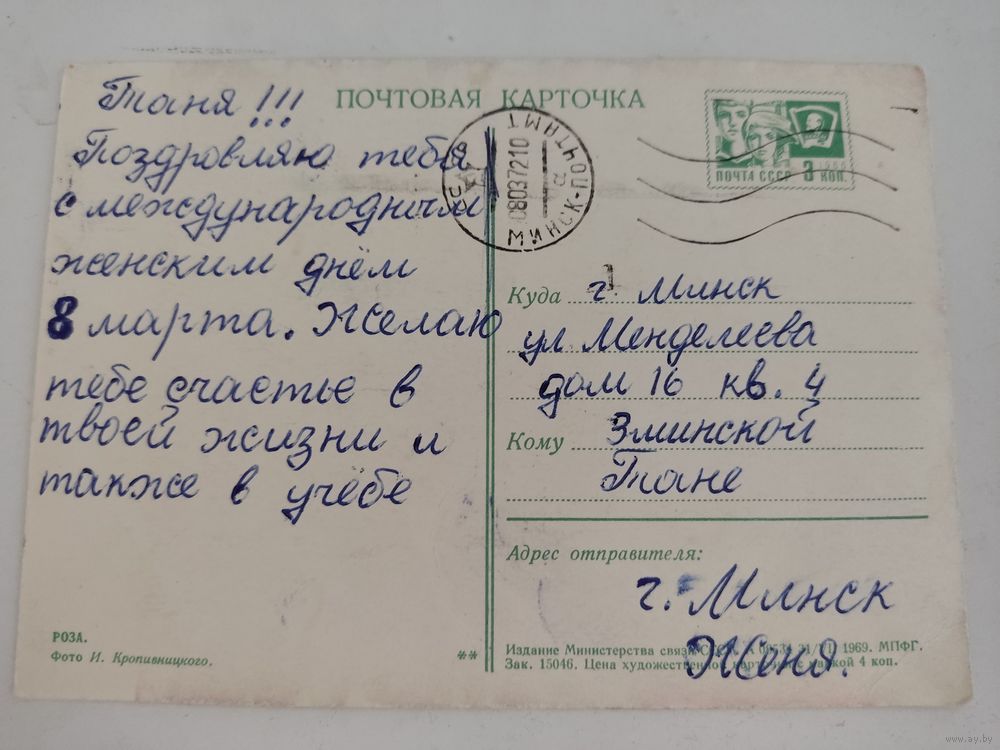 ПОЧТОВАЯ КАРТОЧКА
Таня!!!
Поздровляю тебя
с международным
женским днём
8 марта. Желаю
тебе счастье в
твоей жизни и
также в учёбе
РОЗА.
Фото И. Кропивницкого.
**
МИНСК-ПОЧТАМТ
08037210
ПОЧТА СССР 3 КОП.
1966
Куда г. Минск
ул Менделеева
дом 16 кв. 4
Кому Зминской
Тане
Адрес отправителя:
г. Минск
Женя.
Издание Министерства связи 1969. МПФГ.
Зак. 15046. Цена художественной карточки с маркой 4 коп.
www.ay.by